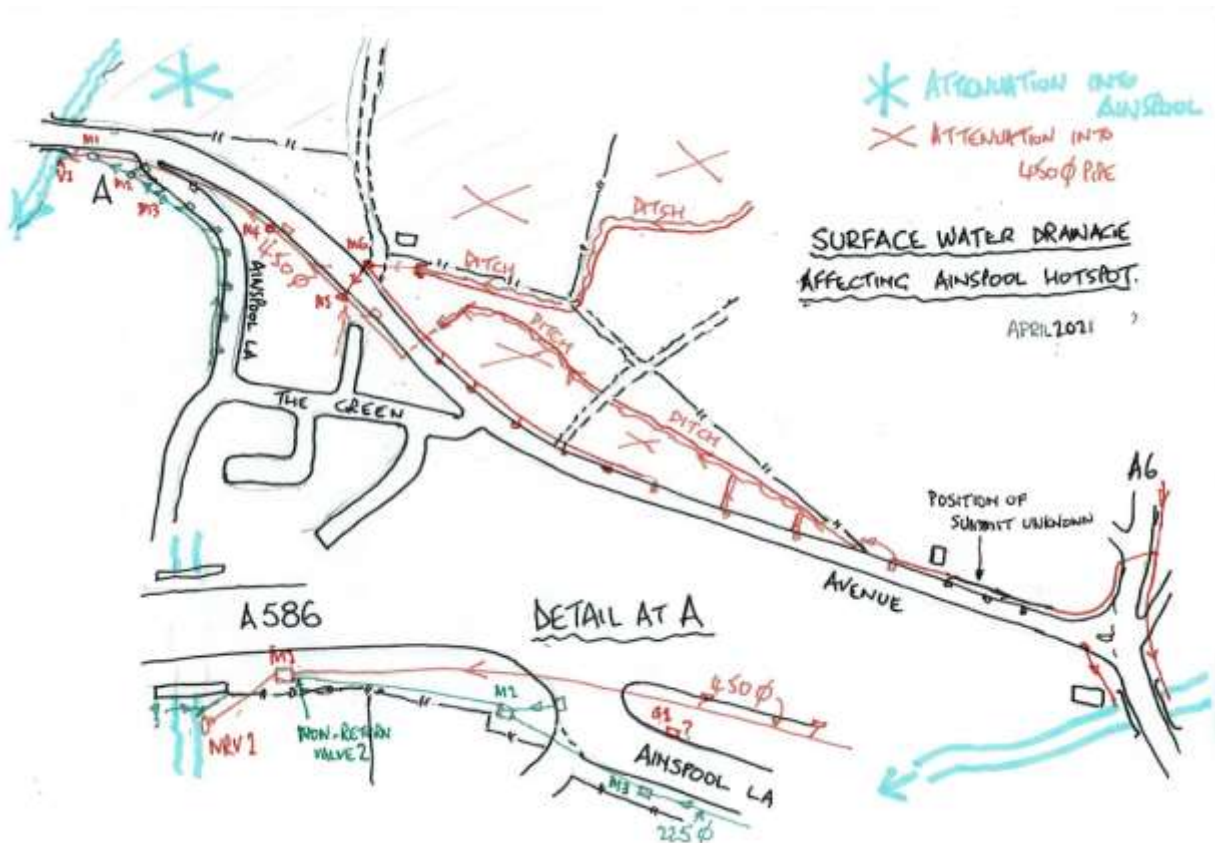 ATTENUATION INTO
AINSPOOL
ATTENUATION INTO
450Φ PIPE
SURFACE WATER DRAINAGE
AFFECTING AINSPOOL HOTSPOT.
APRIL 2021
M1
V1
A
M2
M3
M4
450Φ
M5
M6
AINSPOOL LA
THE GREEN
DITCH
DITCH
DITCH
DITCH
A6
POSITION OF
SUMMIT UNKNOWN
AVENUE
A586
DETAIL AT A
M1
M2
450Φ
G1
?
NRV1
NON-RETURN
VALVE 2
AINSPOOL LA
M3
225Φ